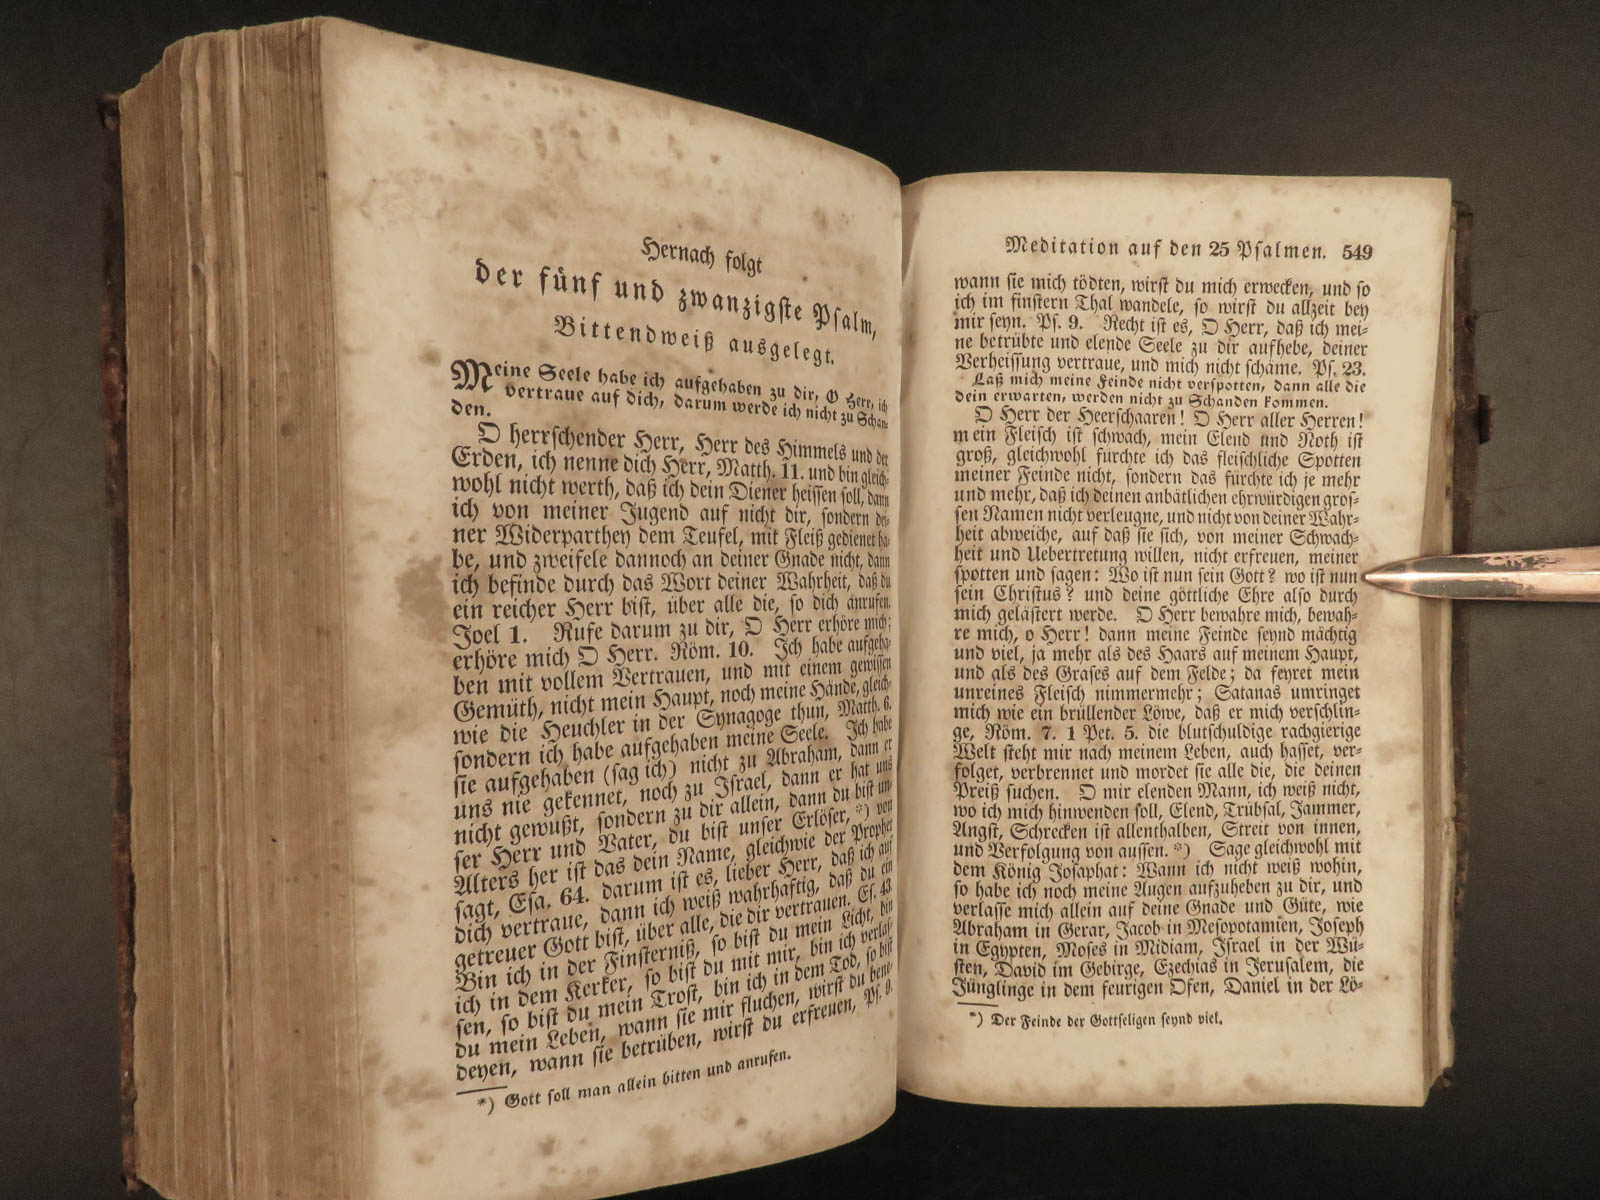 Hernach folgt
der fünf und zwanzigste Psalm,
Bittendweiß ausgelegt.
Meine Seele habe ich aufgehaben zu dir, O Herr, ich
vertraue auf dich, darum werde ich nicht zu Schan-
den.
O herrschender Herr, Herr des Himmels und der
Erden, ich nenne dich Herr, Matth. 11. und bin gleich-
wohl nicht werth, daß ich dein Diener heissen soll, dann
ich von meiner Jugend auf nicht dir, sondern dei-
ner Widerparthey dem Teufel, mit Fleiß gedienet ha-
be, und zweifele dannoch an deiner Gnade nicht, dann
ich befinde durch das Wort deiner Wahrheit, daß du
ein reicher Herr bist, über alle die, so dich anrufen.
Joel 1. Rufe darum zu dir, O Herr erhöre mich;
erhöre mich O Herr. Röm. 10. Ich habe aufgeha-
ben mit vollem Vertrauen, und mit einem gewissen
Gemüth, nicht mein Haupt, noch meine Hände, gleich-
wie die Heuchler in der Synagoge thun, Matth. 6.
sondern ich habe aufgehaben meine Seele. Ich habe
sie aufgehaben (sag ich) nicht zu Abraham, dann er
uns nie gekennet, noch zu Israel, dann er hat uns
nicht gewußt, sondern zu dir allein, dann du bist un-
ser Herr und Vater, du bist unser Erlöser, *) von
Alters her ist das dein Name, gleichwie der Prophet
sagt, Esa. 64. darum ist es, lieber Herr, daß ich auf
dich vertraue, dann ich weiß wahrhaftig, daß du ein
getreuer Gott bist, über alle, die dir vertrauen. Es. 43.
Bin ich in der Finsterniß, so bist du mein Licht, bin
ich in dem Kerker, so bist du mit mir, bin ich verlas-
sen, so bist du mein Trost, bin ich in dem Tod, so bist
du mein Leben, wann sie mir fluchen, wirst du bene-
deyen, wann sie betrüben, wirst du erfreuen, Ps. 9.
*) Gott soll man allein bitten und anrufen.
Meditation auf den 25 Psalmen. 549
wann sie mich tödten, wirst du mich erwecken, und so
ich im finstern Thal wandele, so wirst du allzeit bey
mir seyn. Ps. 9. Recht ist es, O Herr, daß ich mei-
ne betrübte und elende Seele zu dir aufhebe, deiner
Verheissung vertraue, und mich nicht schäme. Ps. 23.
Laß mich meine Feinde nicht verspotten, dann alle die
dein erwarten, werden nicht zu Schanden kommen.
O Herr der Heerschaaren! O Herr aller Herren!
mein Fleisch ist schwach, mein Elend und Noth ist
groß, gleichwohl fürchte ich das fleischliche Spotten
meiner Feinde nicht, sondern das fürchte ich je mehr
und mehr, daß ich deinen anbätlichen ehrwürdigen gros-
sen Namen nicht verleugne, und nicht von deiner Wahr-
heit abweiche, auf daß sie sich, von meiner Schwach-
heit und Uebertretung willen, nicht erfreuen, meiner
spotten und sagen: Wo ist nun sein Gott? wo ist nun
sein Christus? und deine göttliche Ehre also durch
mich gelästert werde. O Herr bewahre mich, bewah-
re mich, o Herr! dann meine Feinde seynd mächtig
und viel, ja mehr als des Haars auf meinem Haupt,
und als des Grases auf dem Felde; da feyret mein
unreines Fleisch nimmermehr; Satanas umringet
mich wie ein brüllender Löwe, daß er mich verschlin-
ge, Röm. 7. 1 Pet. 5. die blutschuldige rachgierige
Welt steht mir nach meinem Leben, auch hasset, ver-
folget, verbrennet und mordet sie alle die, die deinen
Preiß suchen. O mir elenden Mann, ich weiß nicht,
wo ich mich hinwenden soll, Elend, Trübsal, Jammer,
Angst, Schrecken ist allenthalben, Streit von innen,
und Verfolgung von aussen. *) Sage gleichwohl mit
dem König Josaphat: Wann ich nicht weiß wohin,
so habe ich noch meine Augen aufzuheben zu dir, und
verlasse mich allein auf deine Gnade und Güte, wie
Abraham in Gerar, Jacob in Mesopotamien, Joseph
in Egypten, Moses in Midiam, Israel in der Wü-
sten, David im Gebirge, Ezechias in Jerusalem, die
Jünglinge in dem feurigen Ofen, Daniel in der Lö-
*) Der Feinde der Gottseligen seynd viel.